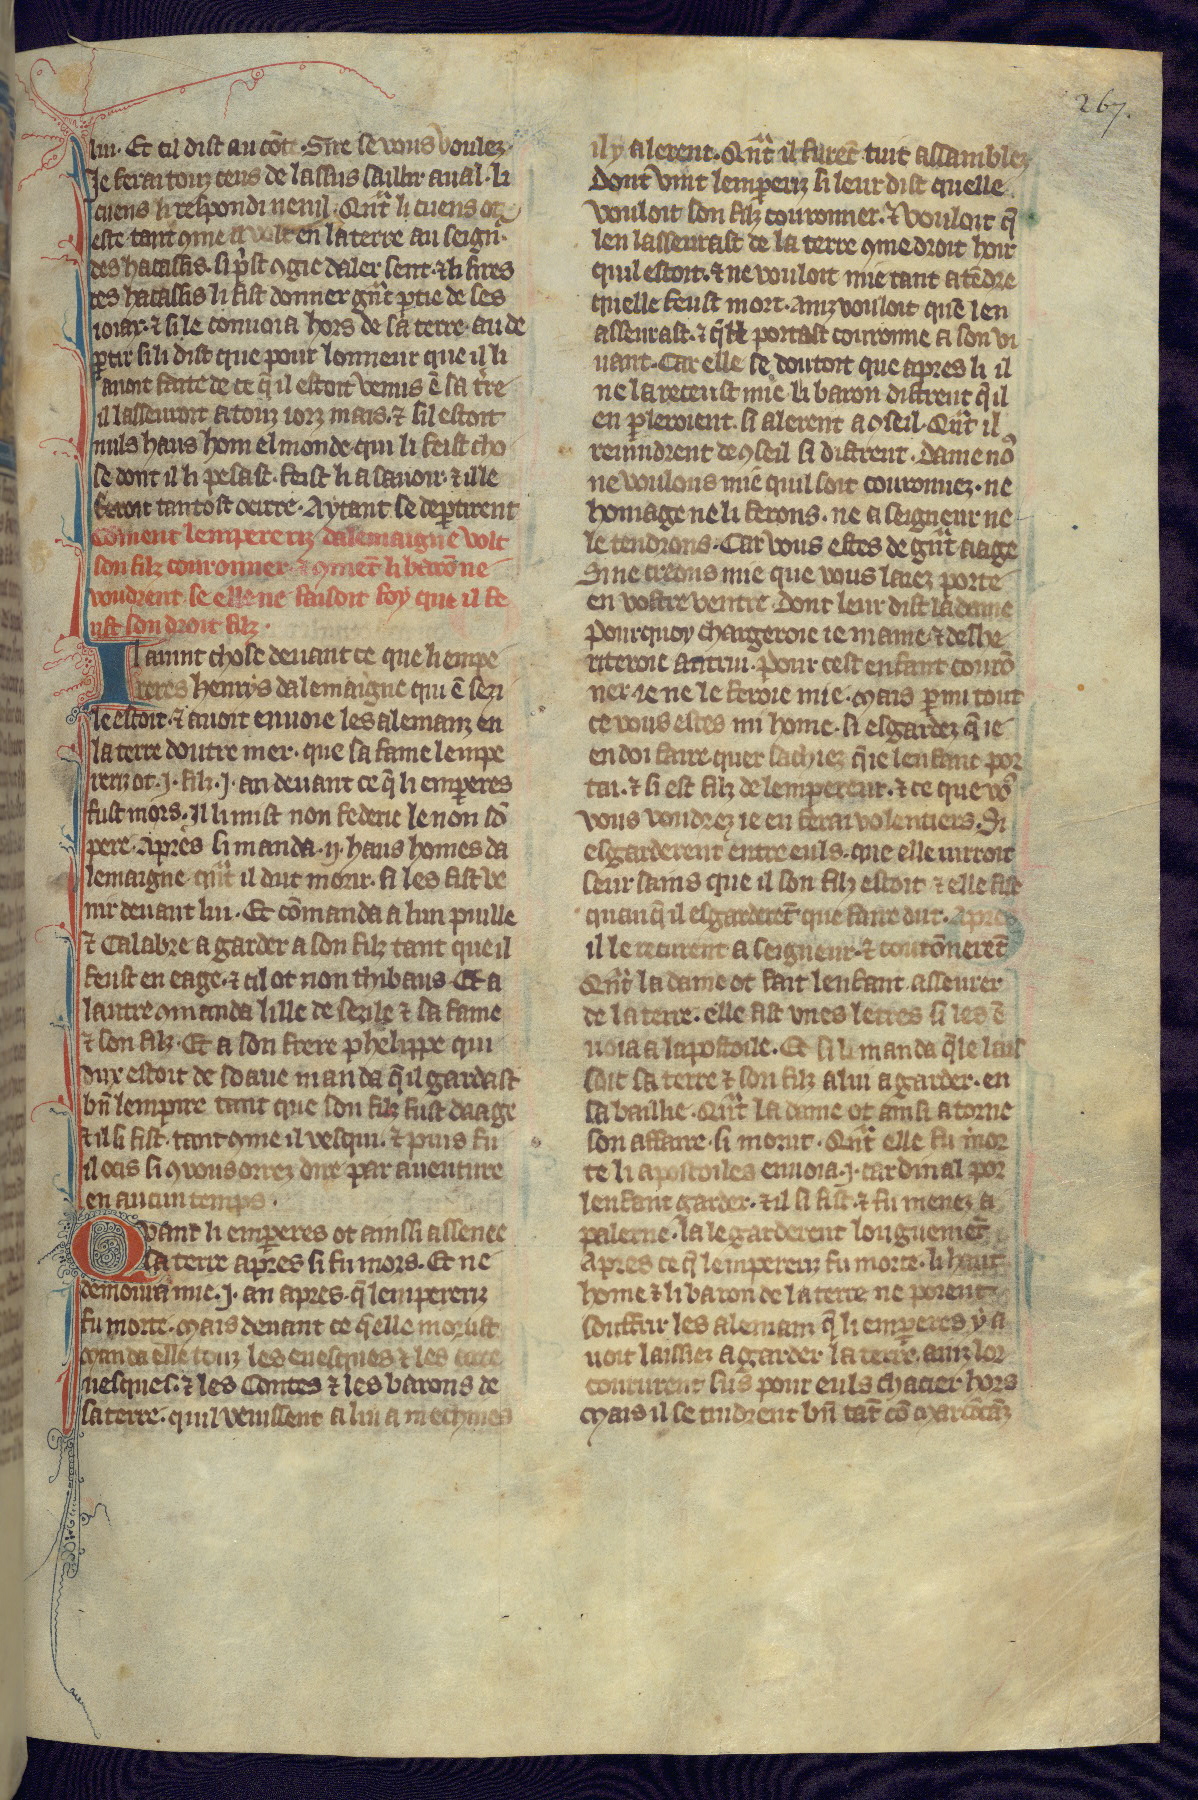 267.
lui. Et cil dist au cōte. Sire se vous voulez.
Je ferai touz ceus de lassus saillir aual. li
cuens li respondi nenil. Qn̄t li cuens ot
este tant ꝯme il volt en la terre au seign̄.
des hacassis. si p̄st ꝯgie daler sent. ⁊ li sires
des hacassis li fist donner gn̄t ꝑtie de ses
ioiax. ⁊ si le conuoia hors de sa terre. au de
ꝑtir si li dist que pour lonneur que il li
auoit faite de ce q̄ il estoit venus ē sa t̄re
il lasseuroit a touz iorz mais. ⁊ sil estoit
nuls haus hom el monde qui li feist cho
se dont il li pesast. feist li a sauoir. ⁊ il le
feroit tantost ocirre. Aytant se deꝑtirent
cōment lempereriz dalemaigne volt
son filz couronner. ⁊ ꝯmēt li barō ne
voudrent se elle ne faisoit foy que il fe
ust son droit filz.
Il auint chose deuant ce que li empe
reres henrys dalemaigne qui ē sezi
le estoit. ⁊ auoit enuoie les alemanz en
la terre doutre mer. que sa fame lempe
reriz ot .j. filz .j. an deuant ce q̄ li emꝑeres
fust mors. Il li mist non federic le non sō
pere. Apres si manda .ij. haus homes da
lemaigne qn̄t il dut morir. si les fist ve
nir deuant lui. Et cōmanda a lun puille
⁊ Calabre a garder a son filz tant que il
feust en eage. ⁊ cil ot non thybaus. Et a
lautre ꝯmanda lille de sezile ⁊ sa fame
⁊ son filz. Et a son frere phelippe qui
dux estoit de soaue manda q̄ il gardast
bn̄ lempire tant que son filz fust daage
⁊ il si fist. tant ꝯme il vesqui. ⁊ puis fu
il ocis si ꝯ vous orrez dire par auenture
en aucun temps.
Quant li emꝑeres ot ainssi assenee
sa terre apres si fu mors. Et ne
demoura mie .j. an apres. q̄ lempereriz
fu morte. Mais deuant ce q̄ elle morust
manda elle touz les euesques ⁊ les arce
uesques. ⁊ les Contes ⁊ les barons de
sa terre. quil venissent a lui a mechines
il y alerent. Qn̄t il furēt tuit assamblez
Dont vint lemꝑeriz si leur dist quelle
vouloit son filz couronner. ⁊ vouloit q̄
len lasseurast de la terre ꝯme droit hoir
quil estoit. ⁊ ne vouloit mie tant atēdre
quelle feust mort. Ainz vouloit que len
asseurast. ⁊ q̄l portast couronne a son vi
uant. Car elle se doutoit que apres li il
ne la receust mie. li baron distrent q̄ il
en ꝑleroient. si alerent a ꝯseil. Qn̄t il
reuindrent de ꝯseil si distrent. Dame noꝰ
ne voulons mie quil soit couronnez. ne
homage ne li ferons. ne a seigneur ne
le tendrons. Car vous estes de gn̄t aage
Si ne creons mie que vous laiez porte
en vostre ventre. Dont leur dist la dame
Pourquoy chargeroie ie mame ⁊ deshe
riteroie autrui. Pour cest enfant courō
ner. ie ne le feroie mie. Mais ꝑmi tout
ce vous estes mi home. si esgardez q̄ ie
en doi faire. quer sachiez q̄ ie lenfant por
tai. ⁊ si est filz de lempereur. ⁊ ce que voꝰ
vous voudrez ie en ferai volentiers. Si
esgarderent entre euls. que elle iurroit
seur sains que il son filz estoit. ⁊ elle fist
quanq̄ il esgarderēt que faire dut. Apres
il le recurent a seigneur. ⁊ courōnerēt
Qn̄t la dame ot fait lenfant asseurer
de la terre. elle fist vnes letres si les ē
uoia a lapostoile. Et si li manda q̄le lais
soit sa terre ⁊ son filz a lui a garder. en
sa baillie. Qn̄t la dame ot ainsi atorne
son affaire. si morut. Qn̄t elle fu mor
te li apostoiles enuoia .j. cardinal por
lenfant garder. ⁊ il si fist. ⁊ fu menez a
palerne. la le garderent longuemēt
Apres ce q̄ lempereriz fu morte. li haut
home ⁊ li baron de la terre ne porent
souffrir les alemam q̄ li emꝑeres y a
uoit laissiez a garder la terre. ainz lor
coururent sus pour euls chacier hors
Mais il se tindrent bn̄ tāt cō